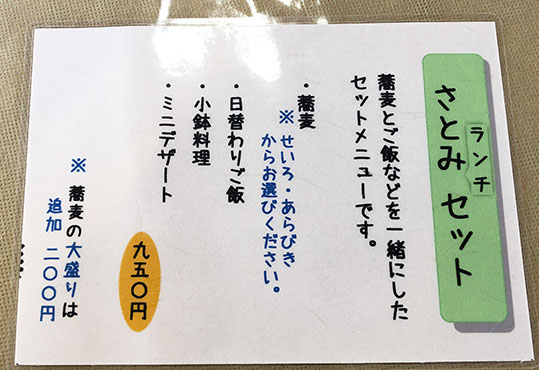 さとみ セット
ランチ
蕎麦とご飯などを一緒にした
セットメニューです。
・蕎麦
※ せいろ・あらびき
からお選びください。
・日替わりご飯
・小鉢料理
・ミニデザート
九五〇円
※ 蕎麦の大盛りは
追加 二〇〇円